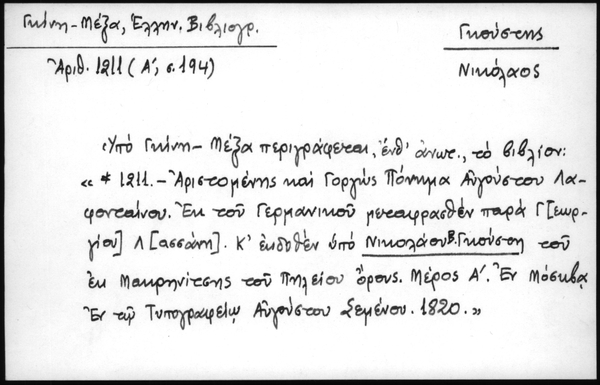 Γκίνη-Μέξα, Ἑλλην. Βιβλιογρ.
Ἀριθ. 1211 (Α', σ. 194)
Γκούστης
Νικόλαος
Ὑπό Γκίνη-Μέξα περιγράφεται, ἔνθ' ἀνωτ., τό βιβλίον:
«* 1211.- Ἀριστομένης καί Γοργώς Πόνημα Αὐγούστου Λα-
φονταίνου. Ἐκ τοῦ Γερμανικοῦ μεταφρασθέν παρά Γ[εωρ-
γίου] Λ[ασσάνη]. Κ' ἐκδοθέν ὑπό Νικολάου Β. Γκούστη τοῦ
ἐκ Μακρηνίτσης τοῦ Πηλείου ὄρους. Μέρος Α'. Ἐν Μόσκβᾳ
Ἐν τῷ Τυπογραφείῳ Αὐγούστου Σεμένου. 1820.»